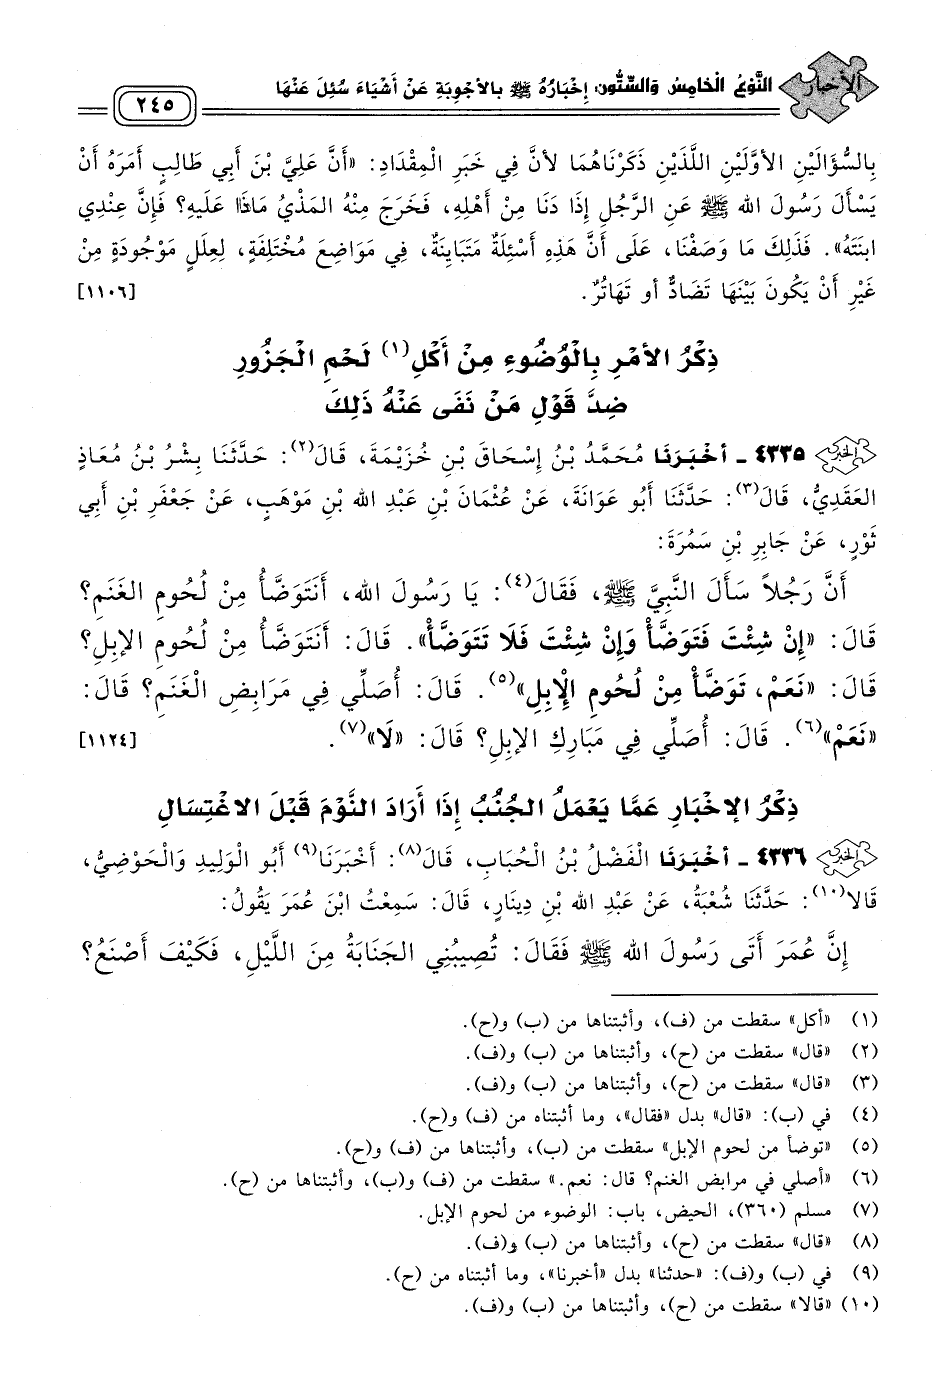 الأخبار
النَّوْعُ الْخَامِسُ وَالسِّتُّونَ: إِخْبَارُهُ ﷺ بِالأَجْوِبَةِ عَنْ أَشْيَاءَ سُئِلَ عَنْهَا
٢٤٥
بِالسُّؤَالَيْنِ الأَوَّلَيْنِ اللَّذَيْنِ ذَكَرْنَاهُمَا لأَنَّ فِي خَبَرِ الْمِقْدَادِ: «أَنَّ عَلِيَّ بْنَ أَبِي طَالِبٍ أَمَرَهُ أَنْ
يَسْأَلَ رَسُولَ اللهِ ﷺ عَنِ الرَّجُلِ إِذَا دَنَا مِنْ أَهْلِهِ، فَخَرَجَ مِنْهُ المَذْيُ مَاذَا عَلَيهِ؟ فَإِنَّ عِنْدِي
ابنَتَهُ». فَذَلِكَ مَا وَصَفْنَا، عَلَى أَنَّ هَذِهِ أَسْئِلَةٌ مَتَبَايِنَةٌ، فِي مَوَاضِعَ مُخْتَلِفَةٍ، لِعِلَلٍ مَوْجُودَةٍ مِنْ
غَيْرِ أَنْ يَكُونَ بَيْنَهَا تَضَادٌّ أو تَهَاتُرٌ. [١١٠٦]
ذِكْرُ الأَمْرِ بِالْوُضُوءِ مِنْ أَكْلِ(١) لَحْمِ الْجَزُورِ
ضِدَّ قَوْلِ مَنْ نَفَى عَنْهُ ذَلِكَ
الخبر ٤٣٣٥ ـ أَخْبَرَنَا مُحَمَّدُ بْنُ إِسْحَاقَ بْنِ خُزَيْمَةَ، قَالَ(٢): حَدَّثَنَا بِشْرُ بْنُ مُعَاذٍ
العَقَدِيُّ، قَالَ(٣): حَدَّثَنَا أَبُو عَوَانَةَ، عَنْ عُثْمَانَ بْنِ عَبْدِ اللهِ بْنِ مَوْهَبٍ، عَنْ جَعْفَرِ بْنِ أَبِي
ثَوْرٍ، عَنْ جَابِرِ بْنِ سَمُرَةَ:
أَنَّ رَجُلاً سَأَلَ النَّبِيَّ ﷺ، فَقَالَ(٤): يَا رَسُولَ اللهِ، أَنَتَوَضَّأُ مِنْ لُحُومِ الغَنَمِ؟
قَالَ: «إِنْ شِئْتَ فَتَوَضَّأْ وَإِنْ شِئْتَ فَلَا تَتَوَضَّأْ». قَالَ: أَنَتَوَضَّأُ مِنْ لُحُومِ الإبِلِ؟
قَالَ: «نَعَمْ، تَوَضَّأْ مِنْ لُحُومِ الْإِبِلِ»(٥). قَالَ: أُصَلِّي فِي مَرَابِضِ الْغَنَمِ؟ قَالَ:
«نَعَمْ»(٦). قَالَ: أُصَلِّي فِي مَبَارِكِ الإبِلِ؟ قَالَ: «لَا»(٧). [١١٢٤]
ذِكْرُ الإخْبَارِ عَمَّا يَعْمَلُ الْجُنُبُ إِذَا أَرَادَ النَّوْمَ قَبْلَ الاغْتِسَالِ
الخبر ٤٣٣٦ ـ أَخْبَرَنَا الْفَضْلُ بْنُ الْحُبَابِ، قَالَ(٨): أَخْبَرَنَا(٩) أَبُو الْوَلِيدِ وَالْحَوْضِيُّ،
قَالا(١٠): حَدَّثَنَا شُعْبَةُ، عَنْ عَبْدِ اللهِ بْنِ دِينَارٍ، قَالَ: سَمِعْتُ ابْنَ عُمَرَ يَقُولُ:
إِنَّ عُمَرَ أَتَى رَسُولَ اللهِ ﷺ فَقَالَ: تُصِيبُنِي الجَنَابَةُ مِنَ اللَّيْلِ، فَكَيْفَ أَصْنَعُ؟
(١) «أكل» سقطت من (ف)، وأثبتناها من (ب) و(ح).
(٢) «قال» سقطت من (ح)، وأثبتناها من (ب) و(ف).
(٣) «قال» سقطت من (ح)، وأثبتناها من (ب) و(ف).
(٤) في (ب): «قال» بدل «فقال»، وما أثبتناه من (ف) و(ح).
(٥) «توضأ من لحوم الإبل» سقطت من (ب)، وأثبتناها من (ف) و(ح).
(٦) «أصلي في مرابض الغنم؟ قال: نعم.» سقطت من (ف) و(ب)، وأثبتناها من (ح).
(٧) مسلم (٣٦٠)، الحيض، باب: الوضوء من لحوم الإبل.
(٨) «قال» سقطت من (ح)، وأثبتناها من (ب) و(ف).
(٩) في (ب) و(ف): «حدثنا» بدل «أخبرنا»، وما أثبتناه من (ح).
(١٠) «قالا» سقطت من (ح)، وأثبتناها من (ب) و(ف).